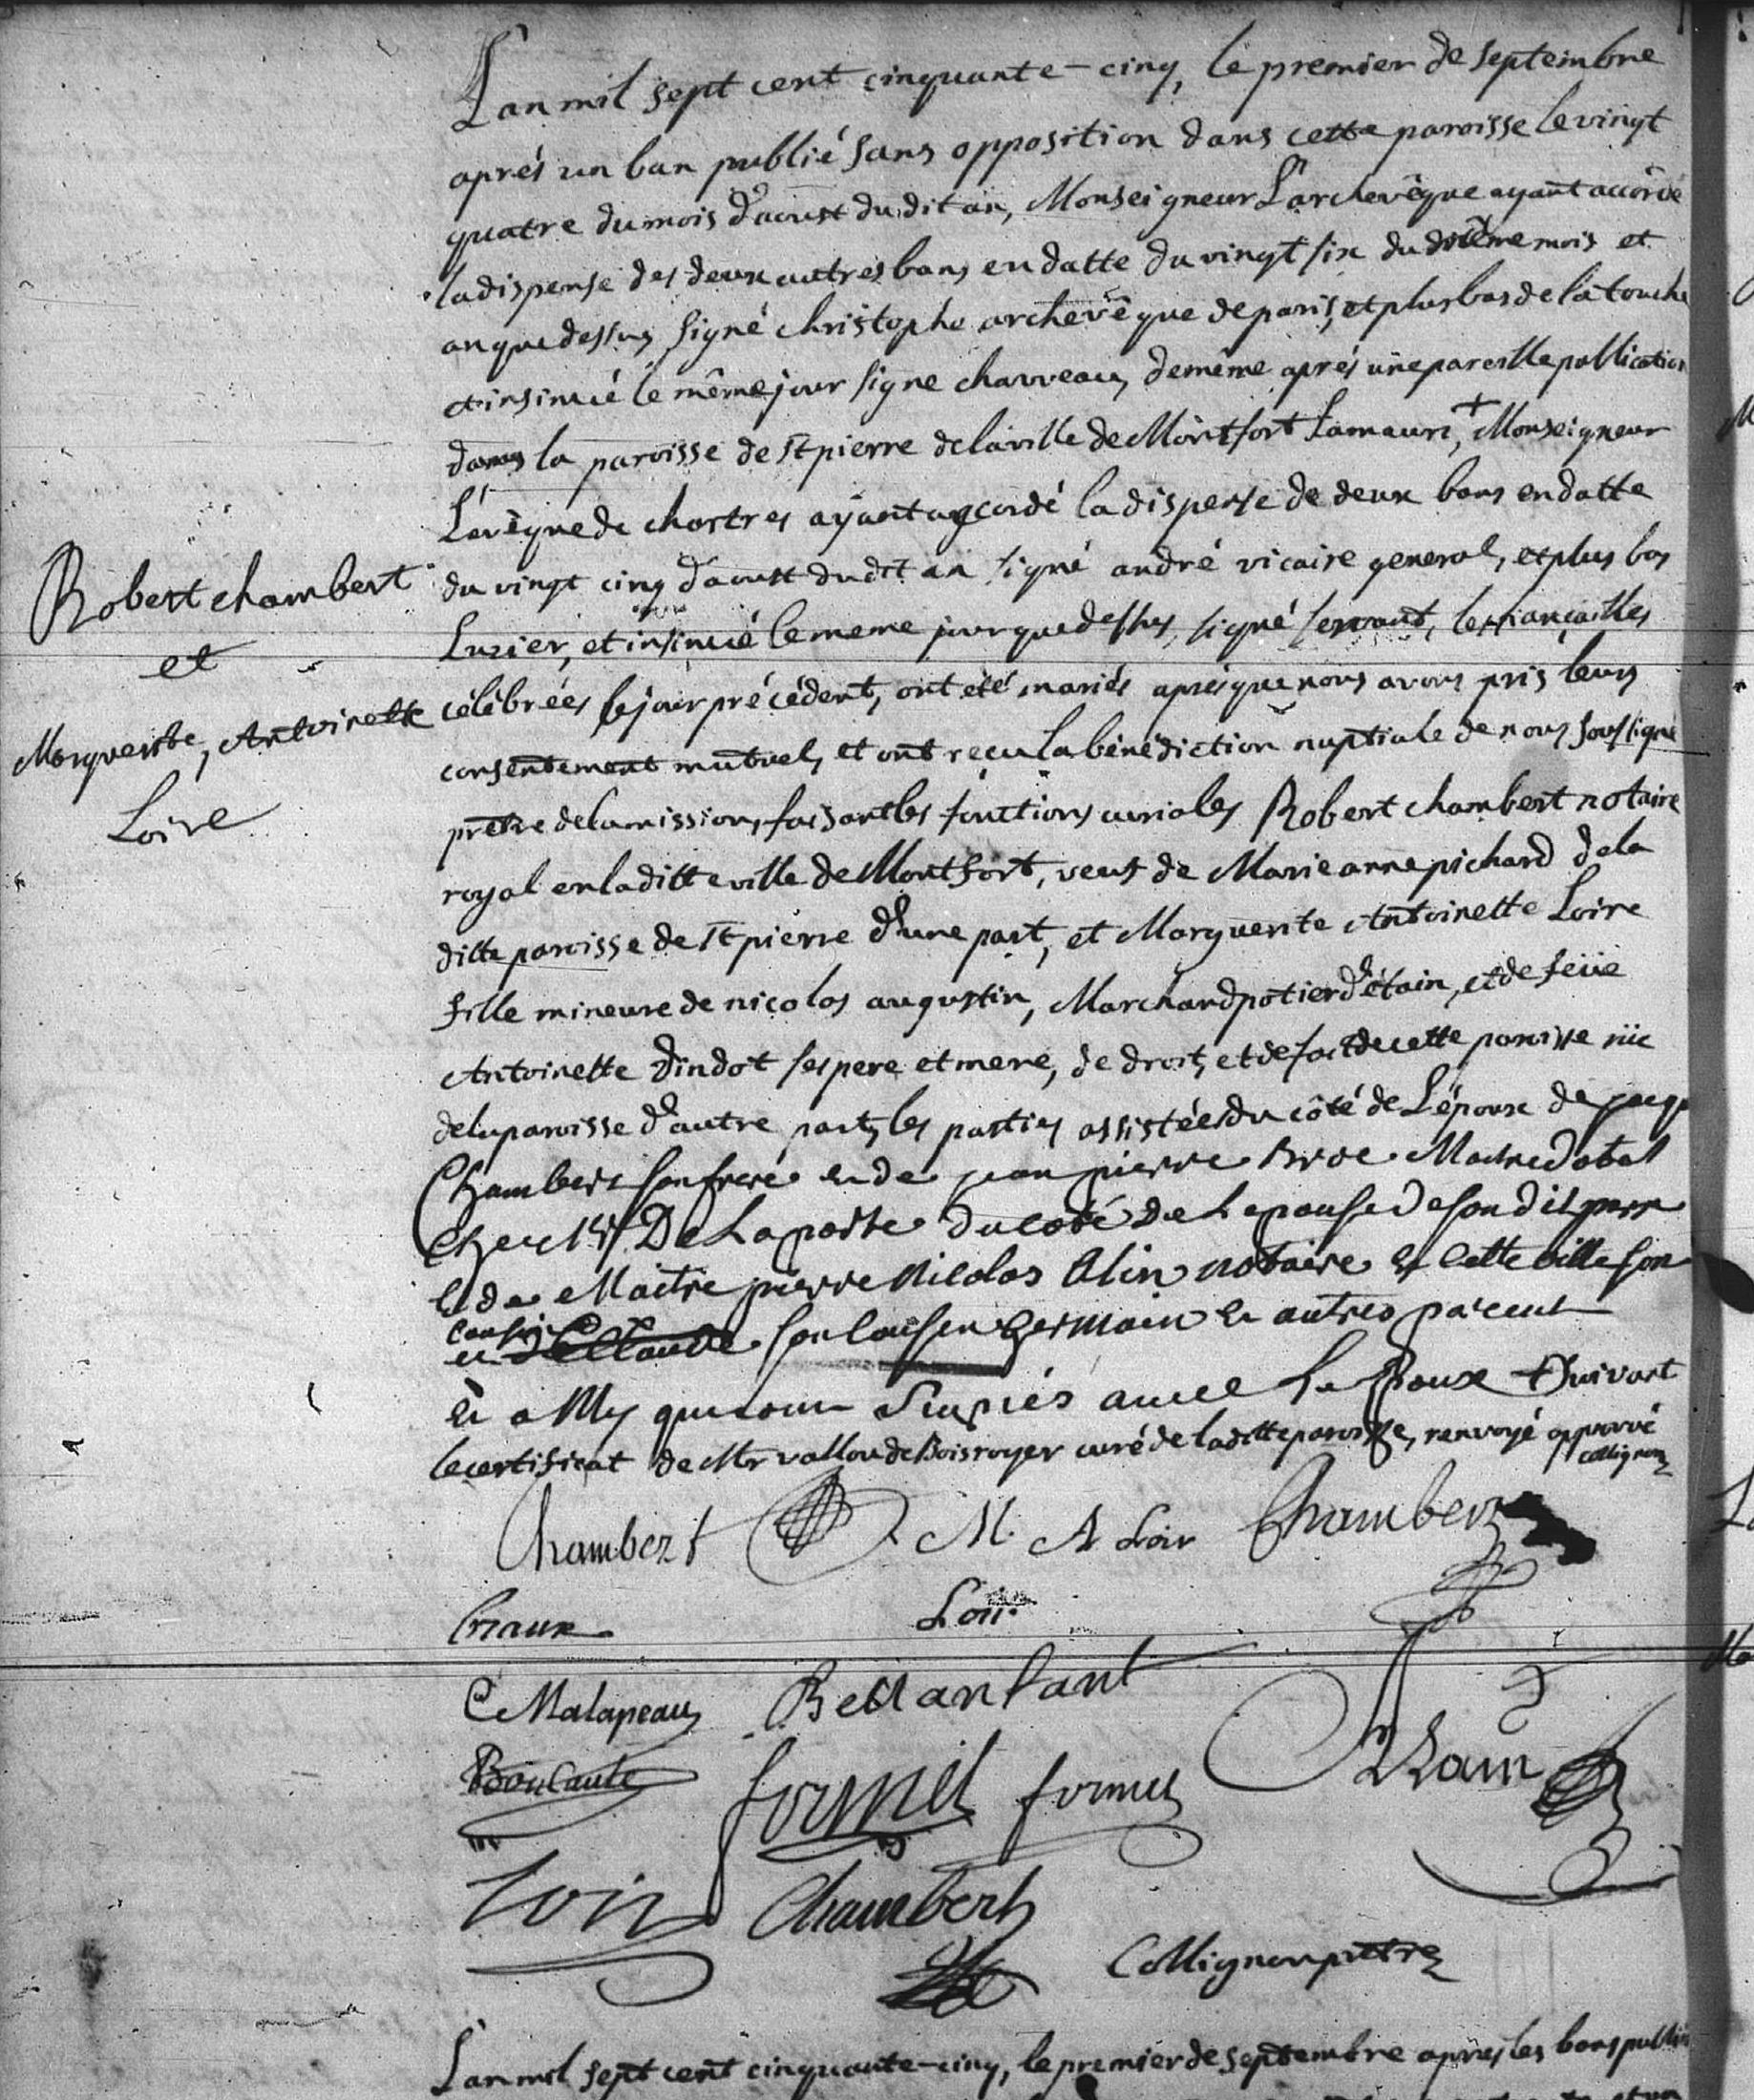 L'an mil sept cent cinquante-cinq, le premier de septembre
aprés un ban publié sans opposition dans cette paroisse le vingt
quatre du mois d'aoust du dit an, Monseigneur L'archevêque ayant accordé
la dispense des deux autres bans en datte du vingt six du même mois et
an que dessus signé christophe archevêque de paris, et plus bas de la touche
et insinué le même jour signé chauveau, de même aprés une pareille publication
dans la paroisse de St pierre de la ville de Montfort Lamauri, + Monseigneur
L'évêque de chartres ayant accordé la dispense de deux bans en datte
du vingt cinq d'aoust dudit an signé andré vicaire general, et plus bas
Luzier, et insinué le meme jour que dessus, signé servant, les fiançailles
célébrées le jour précédent, ont été mariés aprés que nous avons pris leurs
consentement mutuel, et ont recu la bénédiction nuptiale de nous soussigné
prêtre de la mission, faisant les fonctions curiales Robert chambert notaire
royal en la ditte ville de Montfort, veuf de Marie anne pichard de la
ditte paroisse de St pierre d'une part, et Marguerite Antoinette Loire
fille mineure de nicolas augustin, Marchand potier d'étain, et de feüe
Antoinette dindot ses pere et mere, de droit, et de fait de cette paroisse
de la paroisse d'autre part, les parties assistées du côté de L'époux de
Chambert son frere et de jean pierre Maitre
chez De Laporte du coté de Lepouse de son dit pere
et de Maitre pierre Nicolas notaire en cette ville son
cousin
et son cousin germain et autres parent
et amis qui ont signés avec Le Epoux + suivant
le certificat de Mr vallou de Boisroyer curé de la ditte paroisse, renvoyé approuvé
collignon
Robert chambert
et
Marguerite, Antoinette
Loire
Chambert M. A Loir Chambert
Loir
C Malapeau
fornet fornet
Loir Chambert
Collignon prêtre
L'an mil sept cent cinquante-cinq, le premier de septembre aprés les bans publiés